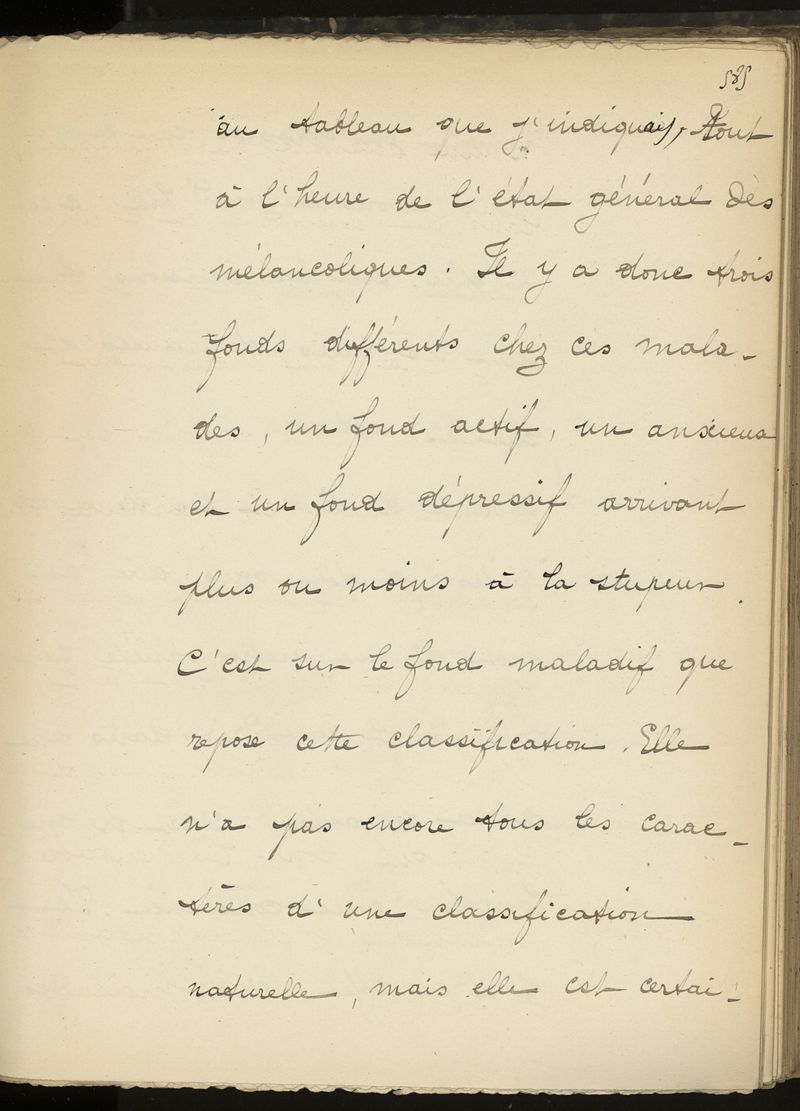 585
au tableau que j'indiquais, tout
à l'heure de l'état général dès
mélancoliques. Il y a donc trois
fonds différents chez ces mala-
des, un fond actif, un anxieux
et un fond dépressif arrivant
plus ou moins à la stupeur.
C'est sur le fond maladif que
repose cette classification. Elle
n'a pas encore tous les carac-
tères d'une classification
naturelle, mais elle est certai-